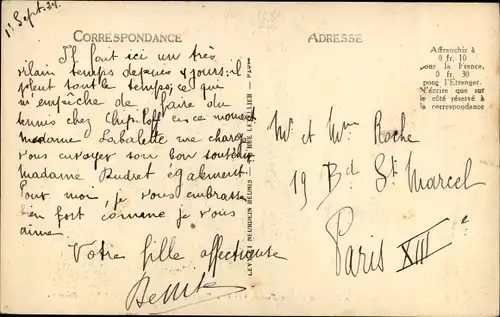 1r Sept. 24.
CORRESPONDANCE
Il fait ici un très
vilain temps depuis 4 jours: il
pleut tout le temps; ce qui
m'empêche de faire du
tennis chez en ce moment
Madame Labalette me charge
vous envoyer son bon souvenir
Madame Budret également
Pour moi, je vous embrasse
bien fort comme je vous
aime.
Votre fille affectueuse
LEVY ET NEURDEIN REUNIS
ADRESSE
Affranchir à
0 fr. 10
pour la France,
0 fr. 30
pour l'Etranger.
N'écrire que sur
le côté réservé à
la correspondance
Mr et Mme Roche
19 Bd St Marcel
Paris XIIIe